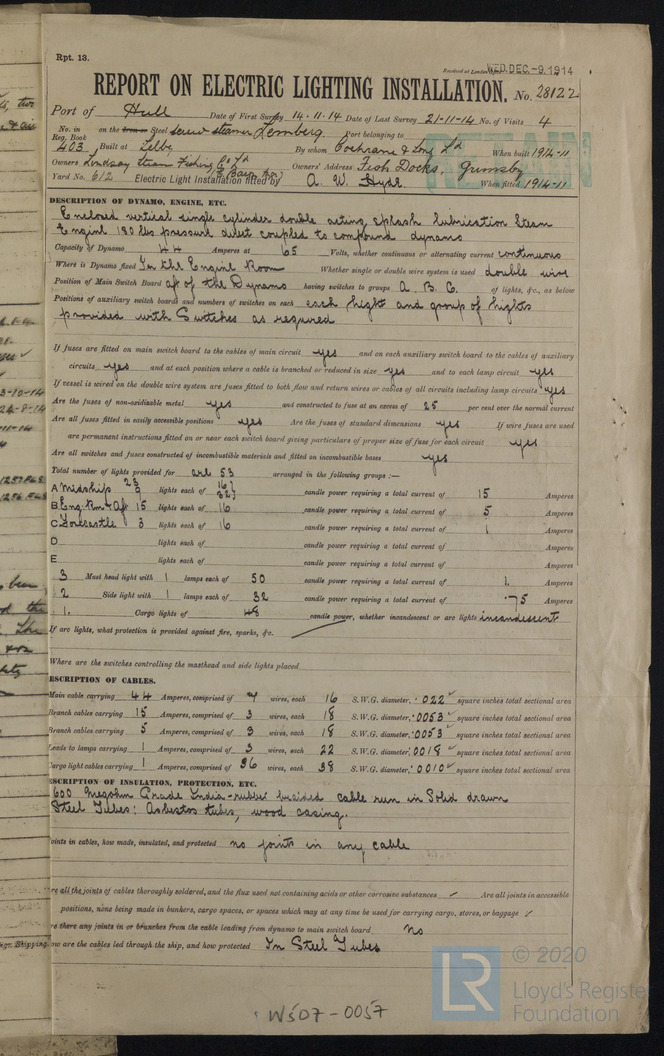 Rpt. 13.
Received at London
WED. DEC. -9. 1914
REPORT ON ELECTRIC LIGHTING INSTALLATION. No. 28122
Port of Hull Date of First Survey 14.11.14 Date of Last Survey 21-11-14 No. of Visits 4
No. in Reg. Book 403 on the Iron or Steel Screw steamer Lemberg Port belonging to
Built at Selby By whom Cochrane & Sons Ld When built 1914-11
Owners Lindsay Steam Fishing Co Ld Owners' Address Fish Docks, Grimsby
Yard No. 612 Electric Light Installation fitted by A. W. Hyde When fitted 1914-11
RETAIN
DESCRIPTION OF DYNAMO, ENGINE, ETC.
Enclosed vertical single cylinder double acting splash lubrication Steam
Engine 180 lbs pressure direct coupled to compound dynamo
Capacity of Dynamo 44 Amperes at 65 Volts, whether continuous or alternating current continuous
Where is Dynamo fixed In the Engine Room Whether single or double wire system is used double wire
Position of Main Switch Board aft of the Dynamo having switches to groups A. B. C. of lights, &c., as below
Positions of auxiliary switch boards and numbers of switches on each each light and group of lights
provided with Switches as required
If fuses are fitted on main switch board to the cables of main circuit yes and on each auxiliary switch board to the cables of auxiliary
circuits yes and at each position where a cable is branched or reduced in size yes and to each lamp circuit yes
If vessel is wired on the double wire system are fuses fitted to both flow and return wires or cables of all circuits including lamp circuits yes
Are the fuses of non-oxidizable metal yes and constructed to fuse at an excess of 25 per cent over the normal current
Are all fuses fitted in easily accessible positions yes Are the fuses of standard dimensions yes If wire fuses are used
are permanent instructions fitted on or near each switch board giving particulars of proper size of fuse for each circuit yes
Are all switches and fuses constructed of incombustible materials and fitted on incombustible bases yes
Total number of lights provided for 53 arranged in the following groups :—
A Midship 23 3 lights each of 16 32 candle power requiring a total current of 15 Amperes
B Eng. Rm & Aft 15 lights each of 16 candle power requiring a total current of 5 Amperes
C Forecastle 3 lights each of 16 candle power requiring a total current of 1 Amperes
D lights each of candle power requiring a total current of Amperes
E lights each of candle power requiring a total current of Amperes
3 Mast head light with 1 lamps each of 50 candle power requiring a total current of 1. Amperes
2 Side light with 1 lamps each of 32 candle power requiring a total current of .75 Amperes
1. Cargo lights of 48 candle power, whether incandescent or arc lights incandescent
If arc lights, what protection is provided against fire, sparks, &c.
Where are the switches controlling the masthead and side lights placed
ESCRIPTION OF CABLES.
Main cable carrying 44 Amperes, comprised of 7 wires, each 16 S.W.G. diameter, .022 square inches total sectional area
Branch cables carrying 15 Amperes, comprised of 3 wires, each 18 S.W.G. diameter, .0053 square inches total sectional area
Branch cables carrying 5 Amperes, comprised of 3 wires, each 18 S.W.G. diameter, .0053 square inches total sectional area
Leads to lamps carrying 1 Amperes, comprised of 3 wires, each 22 S.W.G. diameter, .0018 square inches total sectional area
Cargo light cables carrying 1 Amperes, comprised of 36 wires, each 38 S.W.G. diameter, .0010 square inches total sectional area
ESCRIPTION OF INSULATION, PROTECTION, ETC.
600 Megohm Grade India-rubber braided cable run in Solid drawn
Steel Tubes: Asbestos tubes, wood casing.
oints in cables, how made, insulated, and protected no joints in any cable
re all the joints of cables thoroughly soldered, and the flux used not containing acids or other corrosive substances ✓ Are all joints in accessible
positions, none being made in bunkers, cargo spaces, or spaces which may at any time be used for carrying cargo, stores, or baggage ✓
re there any joints in or branches from the cable leading from dynamo to main switch board no
ow are the cables led through the ship, and how protected In Steel Tubes
W507-0057
LR
© 2020
Lloyd's Register
Foundation